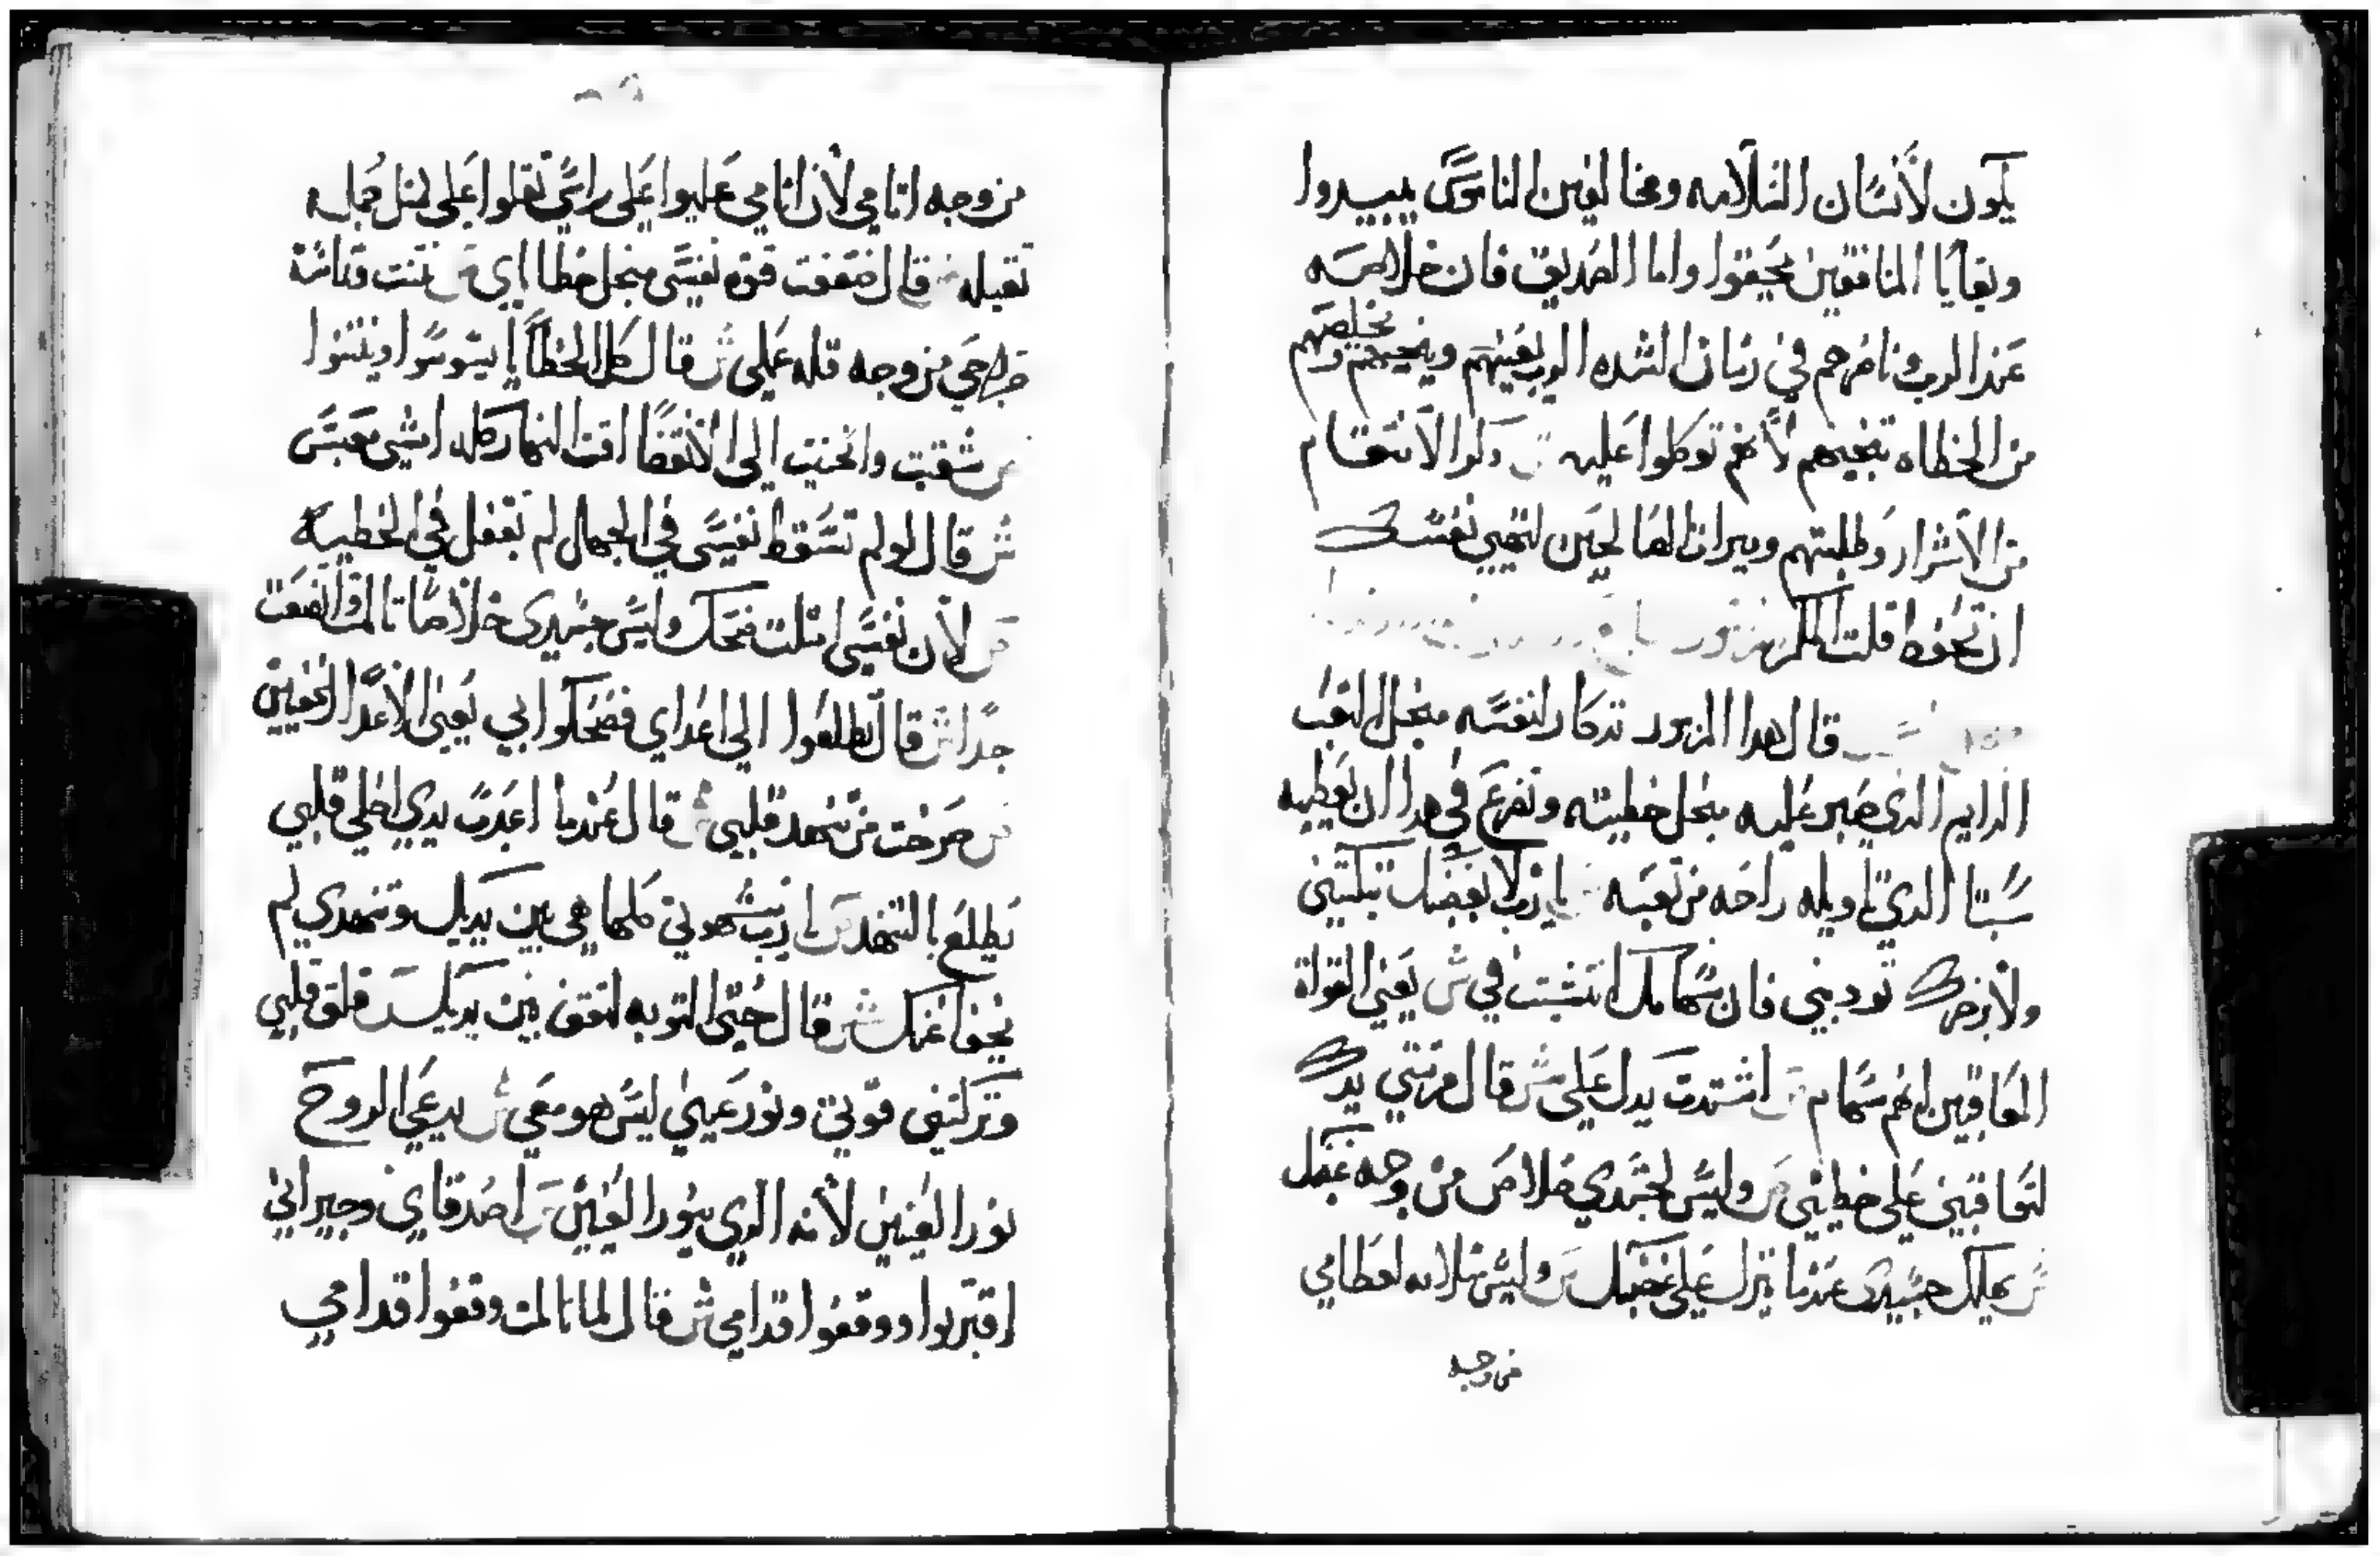 يكون لأنسان السلامه ومخالفين الناموس يبيدوا
وبقايا المنافقين يحيقوا واما الصديق فان خلاصه
عند الرب وناصرهم في زمان الشده الرب يعينهم وينجيهم ويخلصهم
من الخطاه تنجيهم لأنهم توكلوا عليه دكروا الانتقام
من الأشرار وطلبتهم وميرات الصالحين لتحيي نفسك
ان تحفظ قلت المزمور
قال هدا المزمور تدكار لنفسه منجل التعب
الدايم الدي صبر عليه منجل خطيته وتضرع في هدا ان يعطيه
سبتا الدي تاويله راحه من تعبه يارب لا بغضبك تبكتني
ولا برجزك تودبني فان سهامك انتشبت في ش يعني القواة
المعاقبين لهم سهام ص اشتدت يدك علي ش قال مرتني يدك
لتعاقبني علي خطيتي ص وليس لجسدي خلاص من وجه غضبك
ش يهلك جسدي عندما ينزل علي غضبك ص وليس سلامه لعظامي
من وجه
من وجه اتامي لأن اتامي عليوا علي راسي تقلوا علي مثل حمله
تقيله ش قال ضعفت قوة نفسي منجل خطاياي ص نتنت وقاست
جراحي من وجه قلة عملي ش قال كل الخطايا يسوسوا وينتنوا
ص شقيت وانحنيت الي الأنقضا اقت النهار كله امشي معبس
ش قال لو لم تسقط نفسي في الجهال لم تغفل في الخطيه
ص لأن نفسي امتلت ضحك وليس جسدي خلاصا تالمت واتضعت
جدا ش قال تطلعوا الي اعداي فضحكوا بي يعني الأعدا الخفيين
ص صرخت من تنهد قلبي ش قال عندما اعدمت يدي اصلي قلبي
يطلع بالتنهد ص يارب شهوتي كلها هي بين يديك وتنهدي لم
يخفا عنك ش قال حتي التوبه لتقف بين يديك ص قلق قلبي
وتركتني قوتي ونور عيني ليس هو معي ش يدعي الروح
نور العينين لأنه الدي ينور العينين ص اصدقاي وجيراني
اقتربوا ووقفوا قدامي ش قال لما تالمت وقفوا قدامي